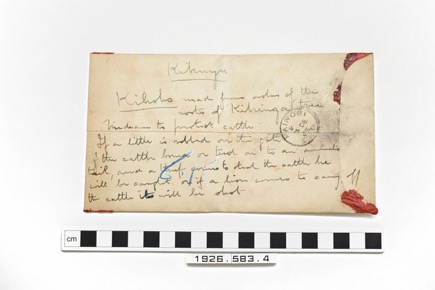 Kikuyu
Kihoho made from ashes of the
roots of Kihinga tree
Medicine to protect cattle
If a little is rubbed on the gate
of the cattle boma or tied on to an animal's
tail and a thief comes to steal the cattle he
will be caught or if a lion comes to carry off
the cattle it will be shot
NAIROBI
cm
1926.583.4